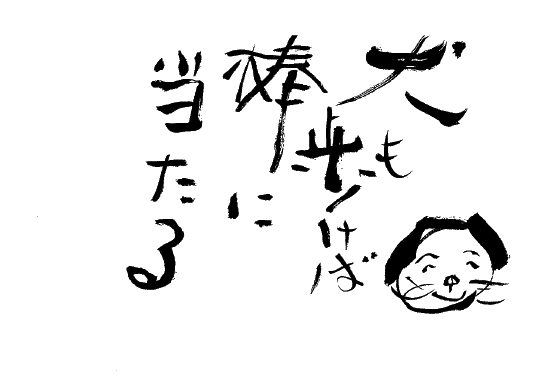 犬も
歩けば
棒に
当たる